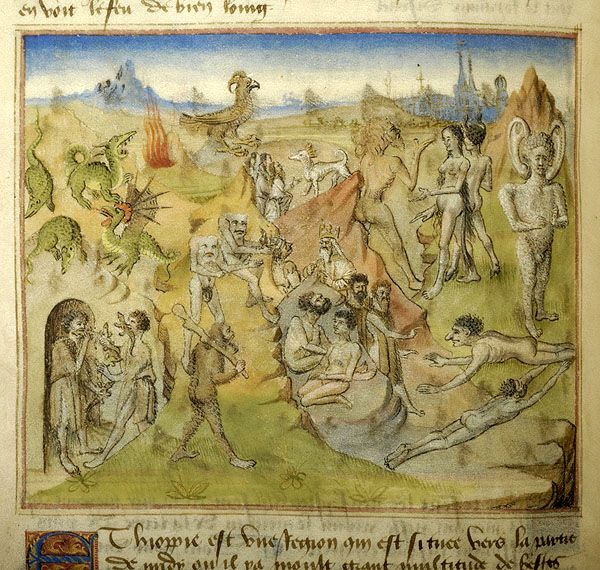 en voit le feu de bien loing
Ethioppie est vne Region qui est situee vers la partie
de midy ou il ya moult grant multitude de bestes